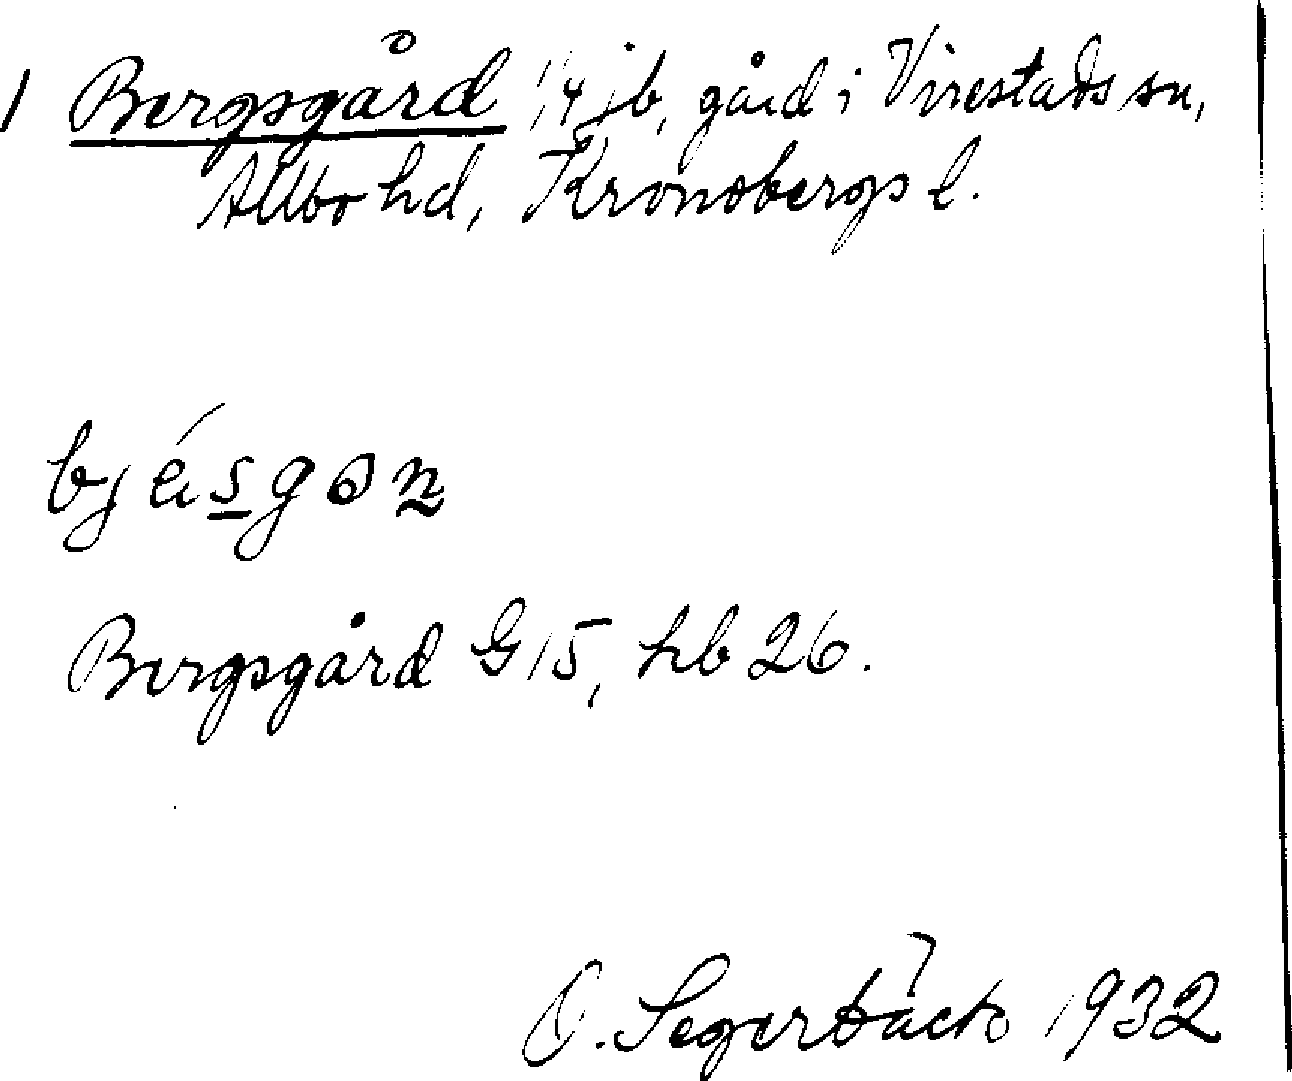 1 Bergsgård 1/4 jb, gård i Virestads sn,
Allbo hd, Kronobergs l.
bjésgɷn
Bergsgård G 15, hb 26.
O. Segerbäck 1932